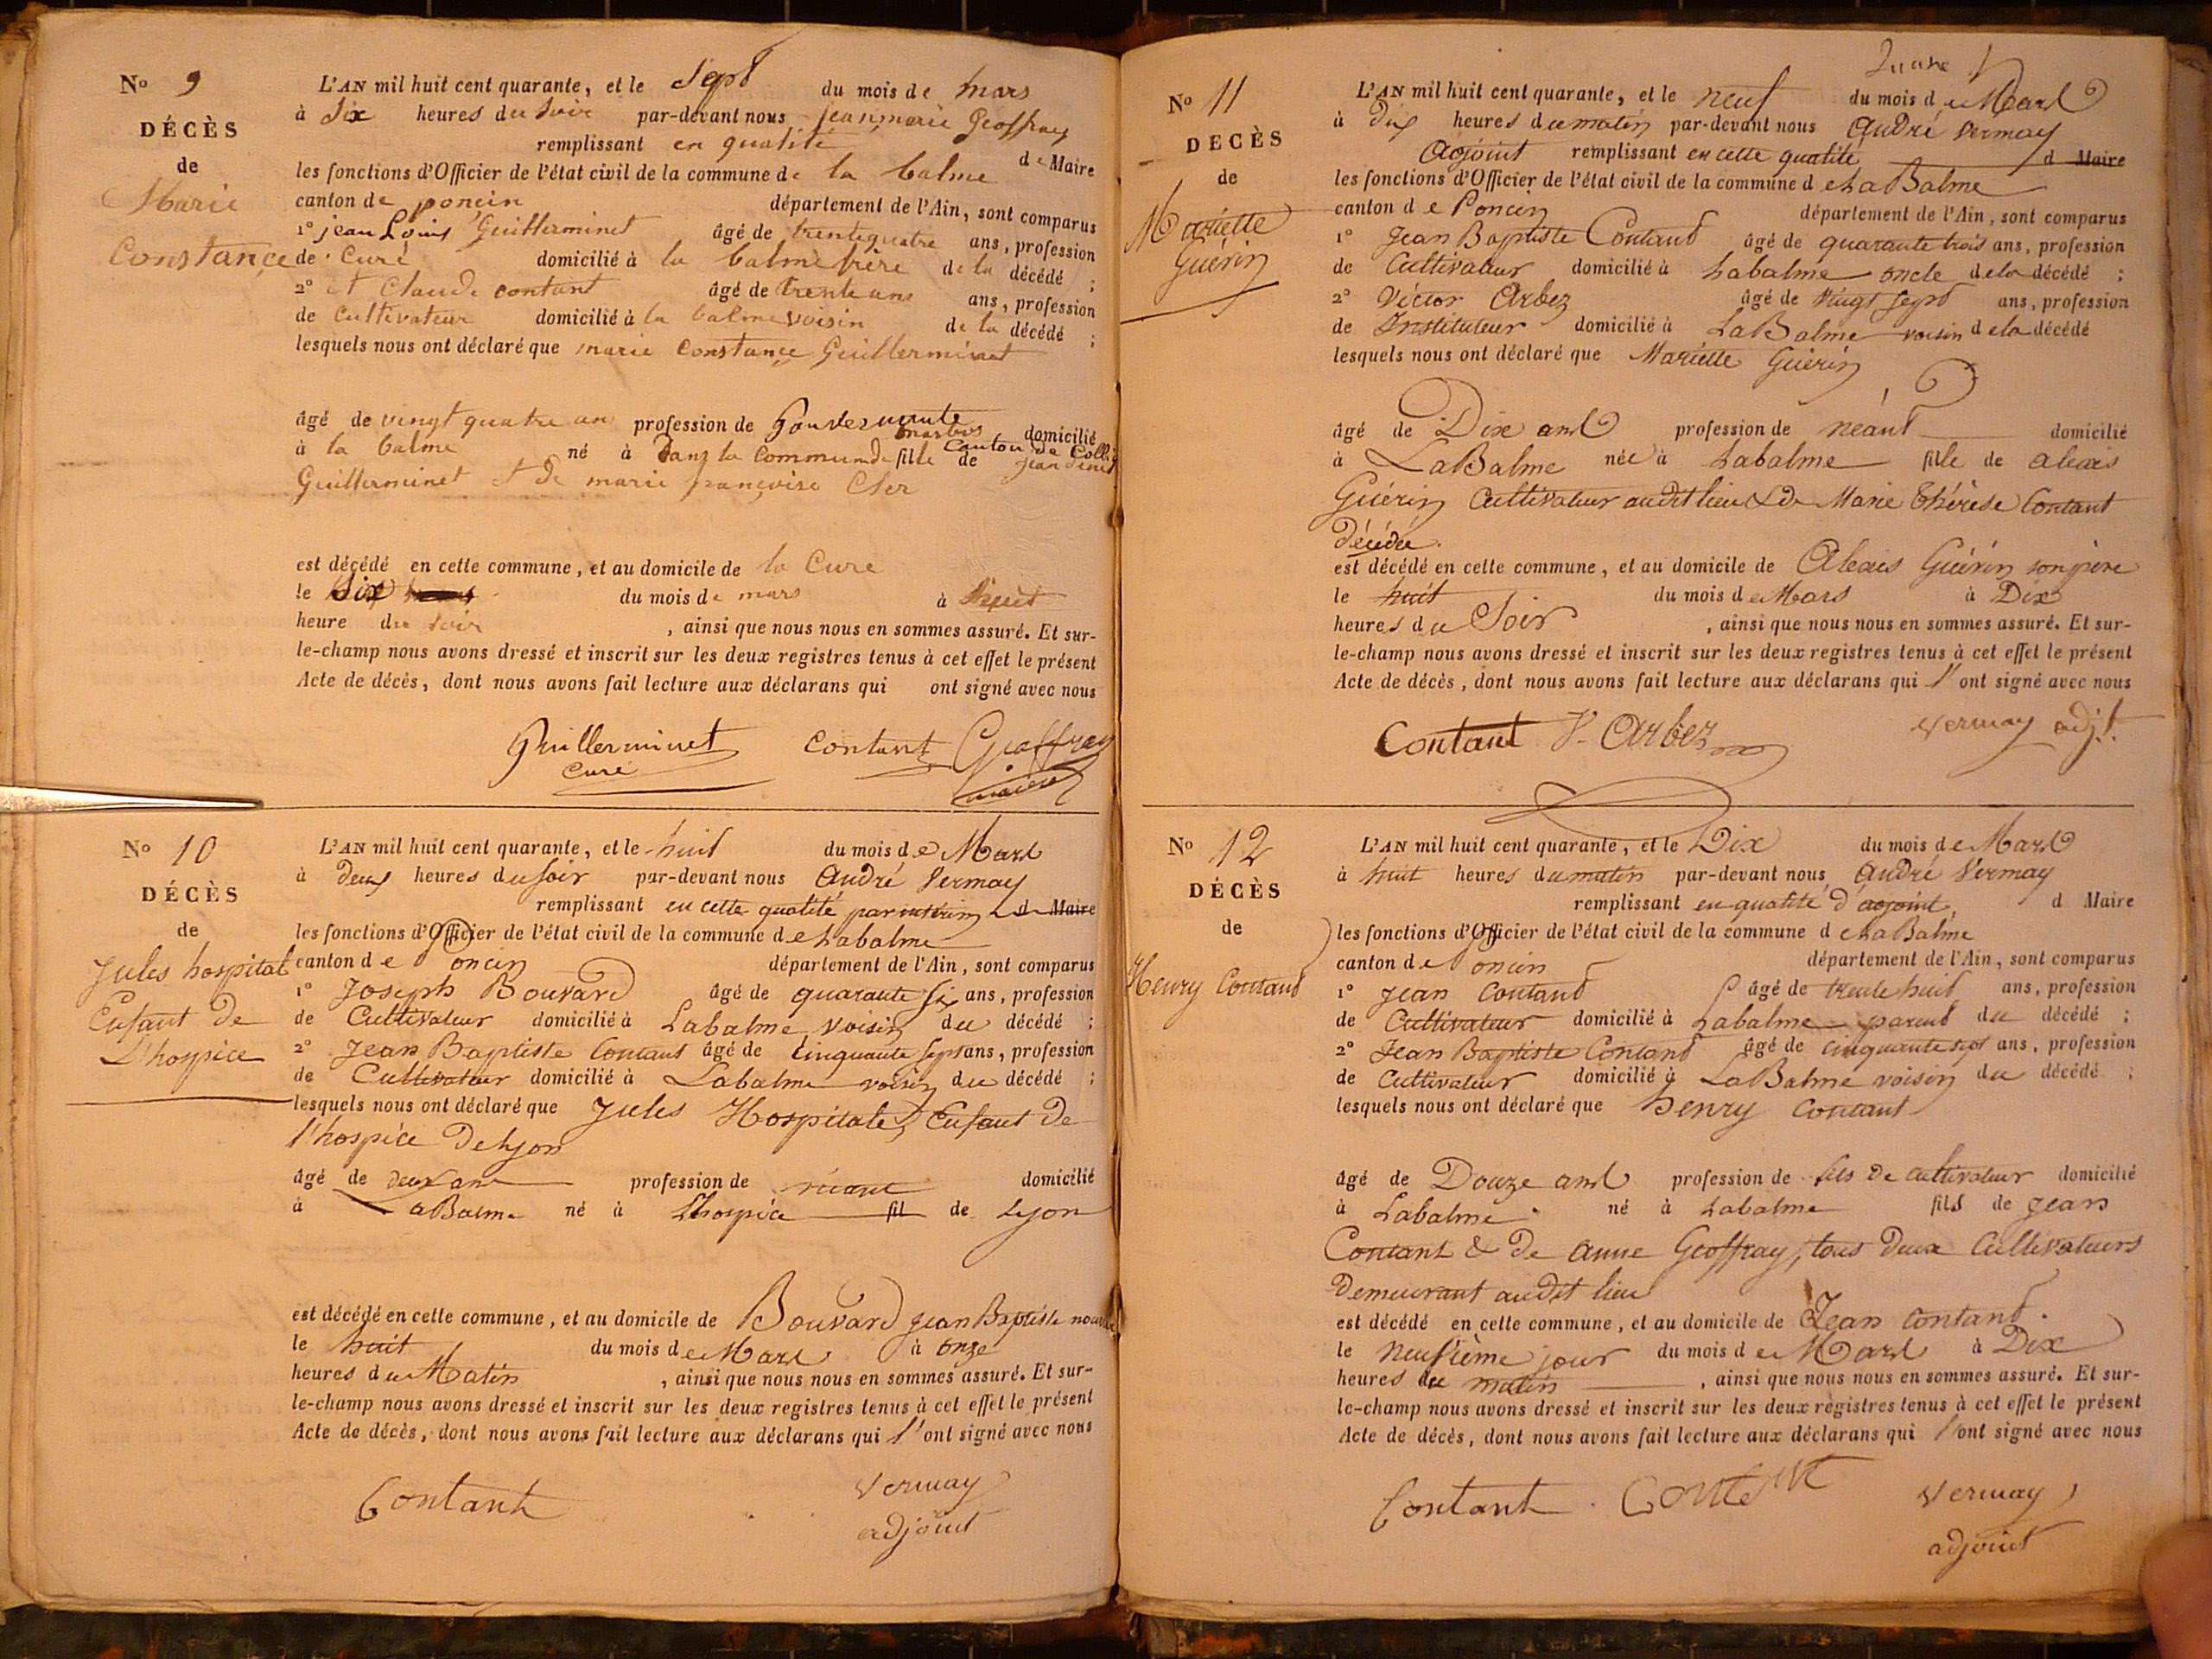 No 9
DÉCÈS
de
Marie
Constance
L'AN mil huit cent quarante, et le sept du mois de mars
à Six heures du soir par-devant nous jean marie Geoffray
remplissant en qualité de Maire
les fonctions d'Officier de l'état civil de la commune de la balme
canton de poncin département de l'Ain, sont comparus
1o jean Louis Guillerminet âgé de trentequatre ans, profession
de Curé domicilié à la balme frère de la décédé ;
2o et Claude contant âgé de trente ans ans, profession
de Cultivateur domicilié à la balme voisin de la décédé ;
lesquels nous ont déclaré que marie Constance Guillerminet
âgé de vingt quatre an profession de Gouvernante domicilié
à la balme né à Dans la Commune de marboz Canton de Colli fille de jean
Guillerminet et de marie françoise Cler
est décédé en cette commune, et au domicile de la Cure
le Six du mois de mars à
heure du soir , ainsi que nous nous en sommes assuré. Et sur-
le-champ nous avons dressé et inscrit sur les deux registres tenus à cet effet le présent
Acte de décès, dont nous avons fait lecture aux déclarans qui ont signé avec nous
Guillerminet contant Geoffray
curé maire
No 10
DÉCÈS
de
Jules hospital
Enfant de
L'hospice
L'AN mil huit cent quarante, et le huit du mois de Mars
à deux heures du soir par-devant nous André Vermay
remplissant en cette qualité par intérim d Maire
les fonctions d'Officier de l'état civil de la commune de Labalme
canton de Poncin département de l'Ain, sont comparus
1o Joseph Bouvard âgé de quarante six ans, profession
de Cultivateur domicilié à Labalme voisin du décédé ;
2o Jean Baptiste Contant âgé de cinquante sept ans, profession
de Cultivateur domicilié à Labalme voisin du décédé ;
lesquels nous ont déclaré que Jules Hospitale, Enfant de
l'hospice De Lyon
âgé de deux ans profession de néant domicilié
à LaBalme né à L'hospice fil de Lyon
est décédé en cette commune, et au domicile de Bouvard Jean Baptiste
le huit du mois de Mars à onze
heures du Matin , ainsi que nous nous en sommes assuré. Et sur-
le-champ nous avons dressé et inscrit sur les deux registres tenus à cet effet le présent
Acte de décès, dont nous avons fait lecture aux déclarans qui l'ont signé avec nous
Contant Vermay
adjoint
No 11
DÉCÈS
de
Mariette
Guérin
L'AN mil huit cent quarante, et le neuf du mois de Mars
à Dix heures du matin par-devant nous André Vermay
Adjoint remplissant en cette qualité d Maire
les fonctions d'Officier de l'état civil de la commune de La Balme
canton de Poncin département de l'Ain, sont comparus
1o Jean Baptiste Contant âgé de quarante trois ans, profession
de Cultivateur domicilié à Labalme oncle de la décédé ;
2o Victor Arbez âgé de vingt sept ans, profession
de Instituteur domicilié à LaBalme voisin de la décédé
lesquels nous ont déclaré que Mariette Guérin
âgé de Dix ans profession de néant domicilié
à LaBalme née à Labalme fille de alexis
Guérin Cultivateur audit lieu & de Marie Thérèse Contant
décédée.
est décédé en cette commune, et au domicile de Alexis Guérin son père
le huit du mois de Mars à Dix
heures du Soir , ainsi que nous nous en sommes assuré. Et sur-
le-champ nous avons dressé et inscrit sur les deux registres tenus à cet effet le présent
Acte de décès, dont nous avons fait lecture aux déclarans qui l'ont signé avec nous
Contant V. Arbez Vermay adjt.
No 12
DÉCÈS
de
Henry Contant
L'AN mil huit cent quarante, et le Dix du mois de Mars
à huit heures du matin par-devant nous André Vermay
remplissant en qualité d'adjoint d Maire
les fonctions d'Officier de l'état civil de la commune de La Balme
canton de Poncin département de l'Ain, sont comparus
1o Jean Contant âgé de trente huit ans, profession
de Cultivateur domicilié à Labalme parent du décédé ;
2o Jean Baptiste Contant âgé de cinquante sept ans, profession
de Cultivateur domicilié à LaBalme voisin du décédé ;
lesquels nous ont déclaré que henry Contant
âgé de Douze ans profession de fils de cultivateur domicilié
à Labalme né à Labalme fils de Jean
Contant & de Anne Geoffray, tous deux Cultivateurs
Demeurant audit lieu
est décédé en cette commune, et au domicile de Jean Contant.
le neufième jour du mois de Mars à Dix
heures du matin , ainsi que nous nous en sommes assuré. Et sur-
le-champ nous avons dressé et inscrit sur les deux registres tenus à cet effet le présent
Acte de décès, dont nous avons fait lecture aux déclarans qui l'ont signé avec nous
Contant Vermay
adjoint